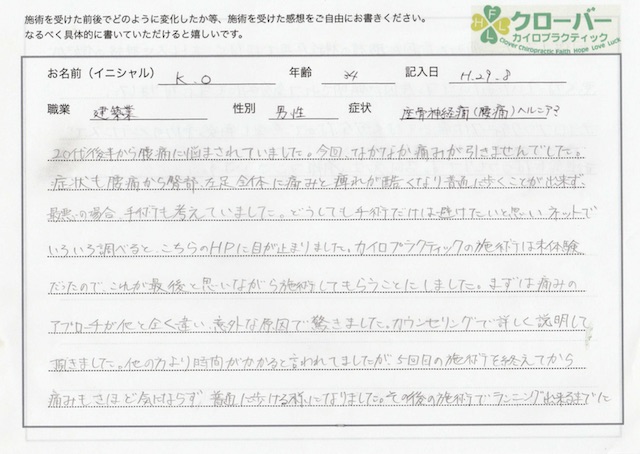 施術を受けた前後でどのように変化したか等、施術を受けた感想をご自由にお書きください。
なるべく具体的に書いていただけると嬉しいです。
HFLL
クローバー
カイロプラクティック
Clover Chiropractic Faith Hope Love Luck
お名前（イニシャル） K.O 年齢 34 記入日 H.29.8
職業 建築業 性別 男性 症状 座骨神経痛（腰痛）ヘルニア？
20代後半から腰痛に悩まされていました。今回、なかなか痛みが引きませんでした。
症状も腰痛から臀部、左足全体に痛みと痺れが酷くなり普通に歩くことが出来ず、
最悪の場合、手術も考えていました。どうしても手術だけは避けたいと思い、ネットで
いろいろ調べると、こちらのHPに目が止まりました。カイロプラクティックの施術は未体験
だったので、これが最後と思いながら施術してもらうことにしました。まずは痛みの
アプローチが他と全く違い、意外な原因で驚きました。カウンセリングで詳しく説明して
頂きました。他の方より時間がかかると言われてましたが、5回目の施術を終えてから
痛みもさほど気にならず、普通に歩ける様になりました。その後の施術でランニング出来るまでに